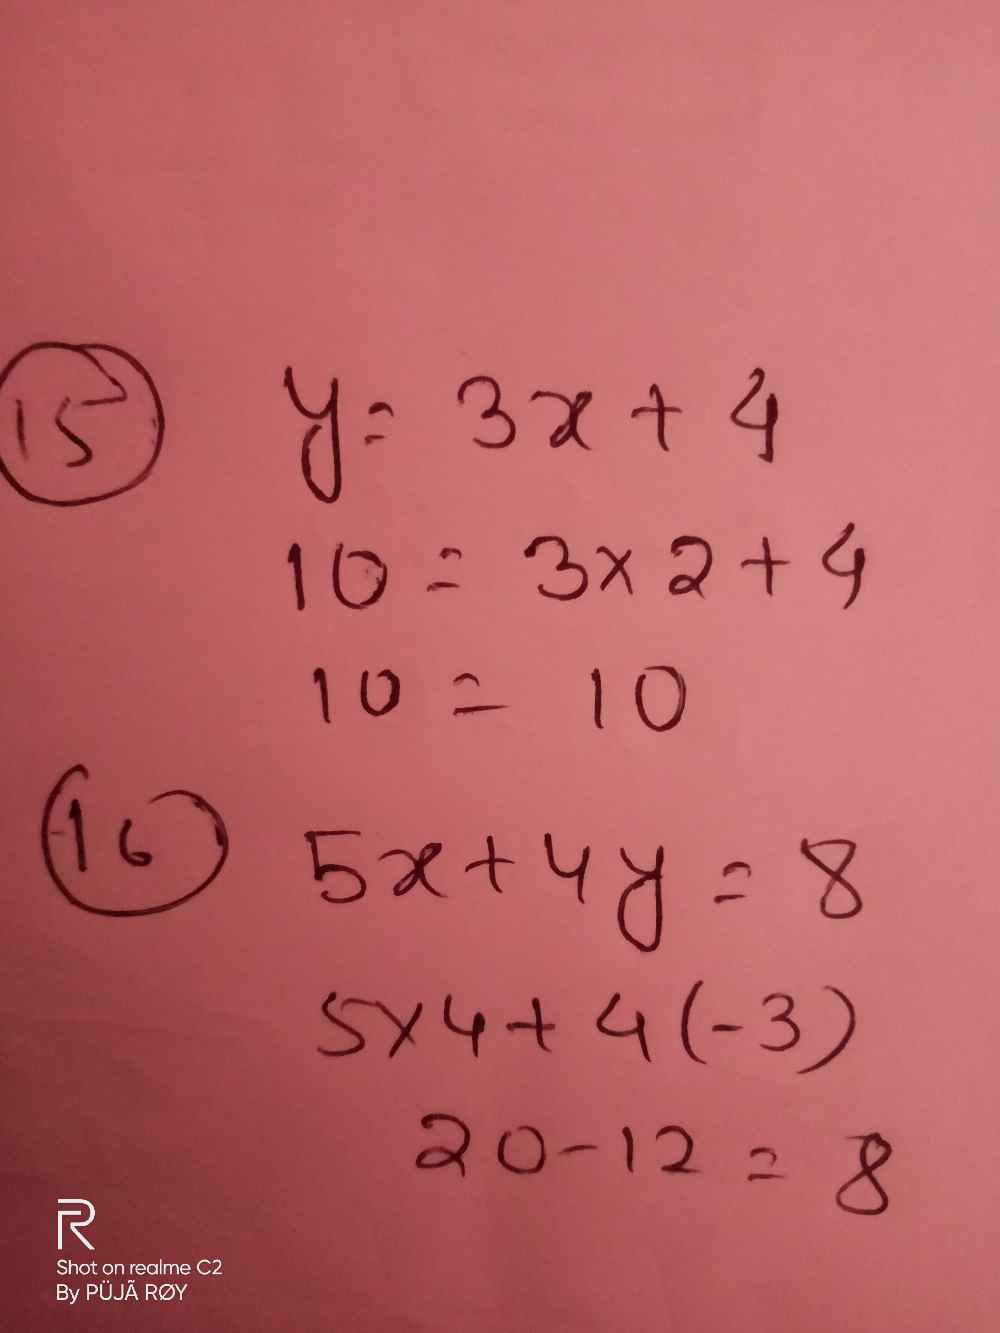 15 y = 3x + 4
10 = 3 × 2 + 4
10 = 10
16 5x + 4y = 8
5 × 4 + 4 (-3)
20 - 12 = 8
R
Shot on realme C2
By PÜJÃ RØY